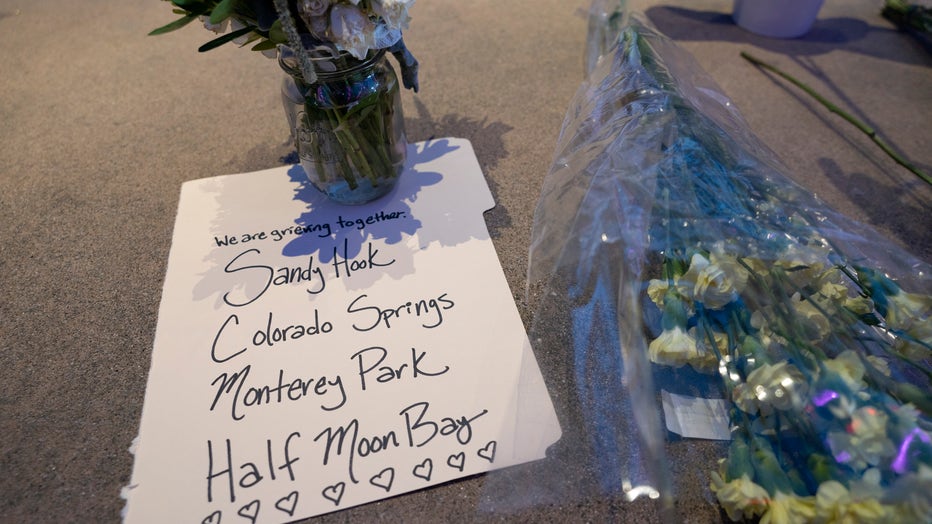 We are grieving together.
Sandy Hook
Colorado Springs
Monterey Park
Half Moon Bay